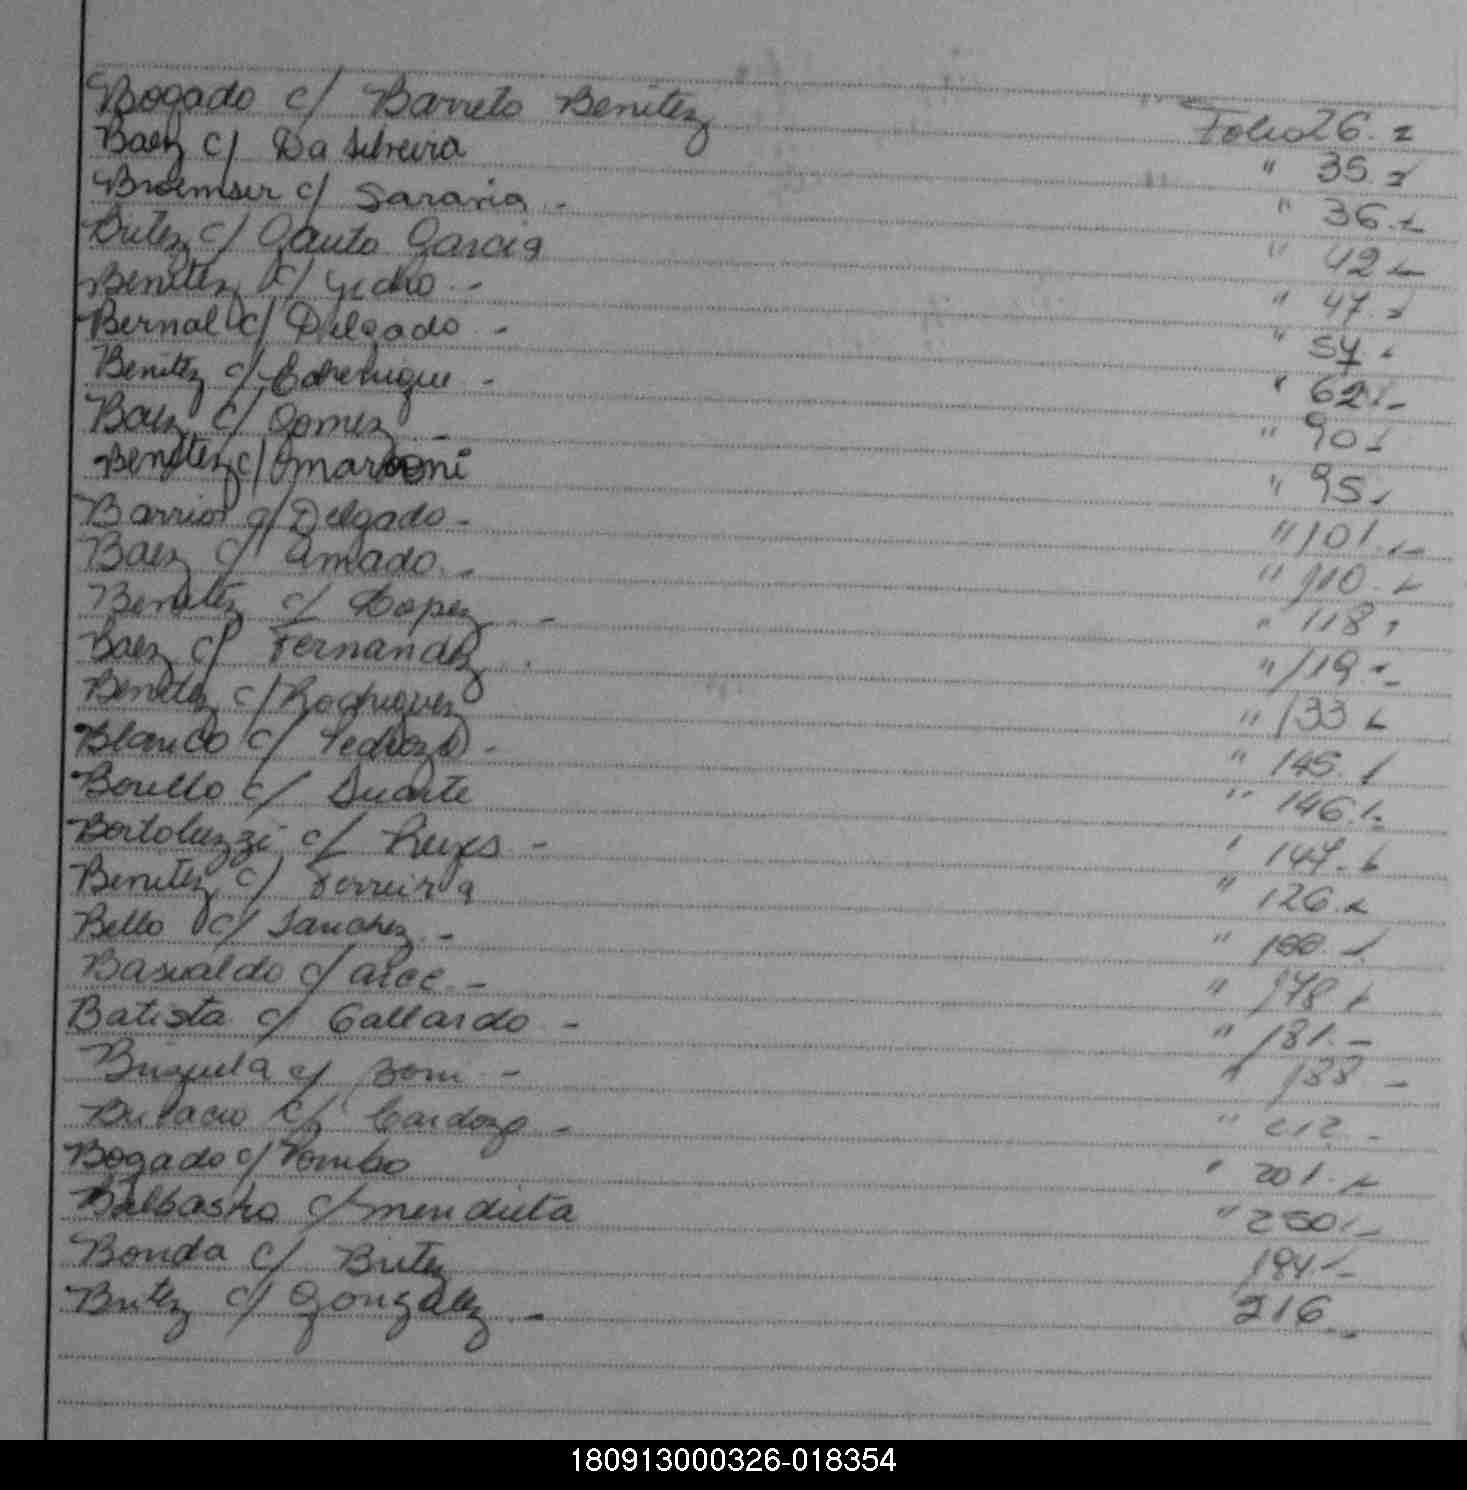 Bogado c/ Barreto Benitez Folio 26.
Baez c/ Da Silveira " 35.
Broemser c/ Saravia - " 36.
Britez c/ Gauto Garcia " 42
Benitez c/ - " 47.
Bernal c/ Delgado - " 57.
Benitez c/ - " 62
Baez c/ Gomez - " 90
Benitez c/ Marconi " 95
Barrios c/ Delgado - " 101.
Baez c/ Amado - " 110.
Benitez c/ Lopez - " 118
Baez c/ Fernandez " 119.
Benitez c/ Rodriguez " 133
Blanco c/ Pedrozo - " 145.
c/ Duarte " 146.
Bortoluzzi c/ Reyes - " 147.
Benitez c/ Ferreira " 126.
Bello c/ Sanchez - "
Basualdo c/ Arce - " 178
Batista c/ Gallardo - " 181.-
c/ - " 188 -
c/ Cardozo - " 212 -
Bogado c/ Pombo " 201.
Balbastro c/ Mendieta " 250
Bonda c/ Britez 184
Britez c/ Gonzalez - 216
180913000326-018354